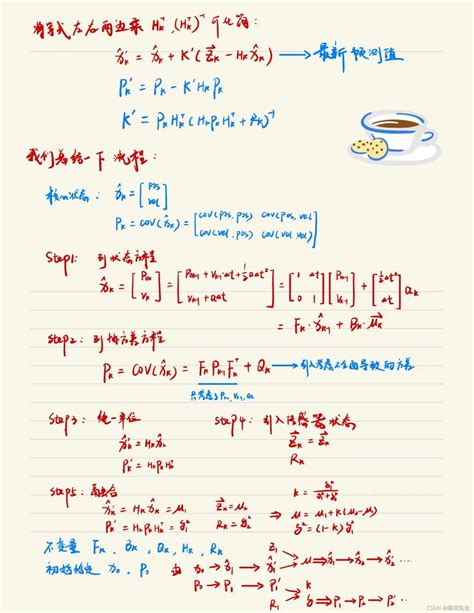 将等式左右两边乘 Hₖ⁻¹, (Hₖᵀ)⁻¹ 可化简:
x̂ₖ' = x̂ₖ + K'(z⃗ₖ - Hₖx̂ₖ) → 最新预测值
Pₖ' = Pₖ - K'HₖPₖ
K' = PₖHₖᵀ(HₖPₖHₖᵀ + Rₖ)⁻¹
我们总结一下流程:
状态: x̂ₖ = [pos vel]
Pₖ = cov(x̂ₖ) = [cov(pos, pos) cov(pos, vel)
cov(vel, pos) cov(vel, vel)]
Step1: 列状态方程
x̂ₖ = [Pₖ Vₖ] = [Pₖ₋₁ + Vₖ₋₁Δt + ½aΔt² Vₖ₋₁ + aΔt] = [1 Δt 0 1][Pₖ₋₁ Vₖ₋₁] + [½Δt² Δt]aₖ
= Fₖ·x̂ₖ₋₁ + Bₖ·u⃗ₖ
Step2: 列协方差方程
Pₖ = cov(x̂ₖ) = FₖPₖ₋₁Fₖᵀ + Qₖ → 引入考虑不全面导致的方差
只考虑了Pₖ₋₁, Vₖ₋₁, aₖ
Step3: 统一单位
x̂ₖ' = Hₖx̂ₖ
Pₖ' = HₖPₖHₖᵀ
Step4: 引入传感器状态
z⃗ₖ = z⃗ₖ
Rₖ
Step5: 高斯融合
x̂ₖ' = Hₖx̂ₖ = μ₁ z⃗ₖ = μ₂
Pₖ' = HₖPₖHₖᵀ = Rₖ =
K =
⇒ μ = μ₁ + K(μ₂ - μ₁)
= (1-K)
不变量 Fₖ, Bₖ, Qₖ, Hₖ, Rₖ
初始给定 x̂₀, P₀ 由
CSDN